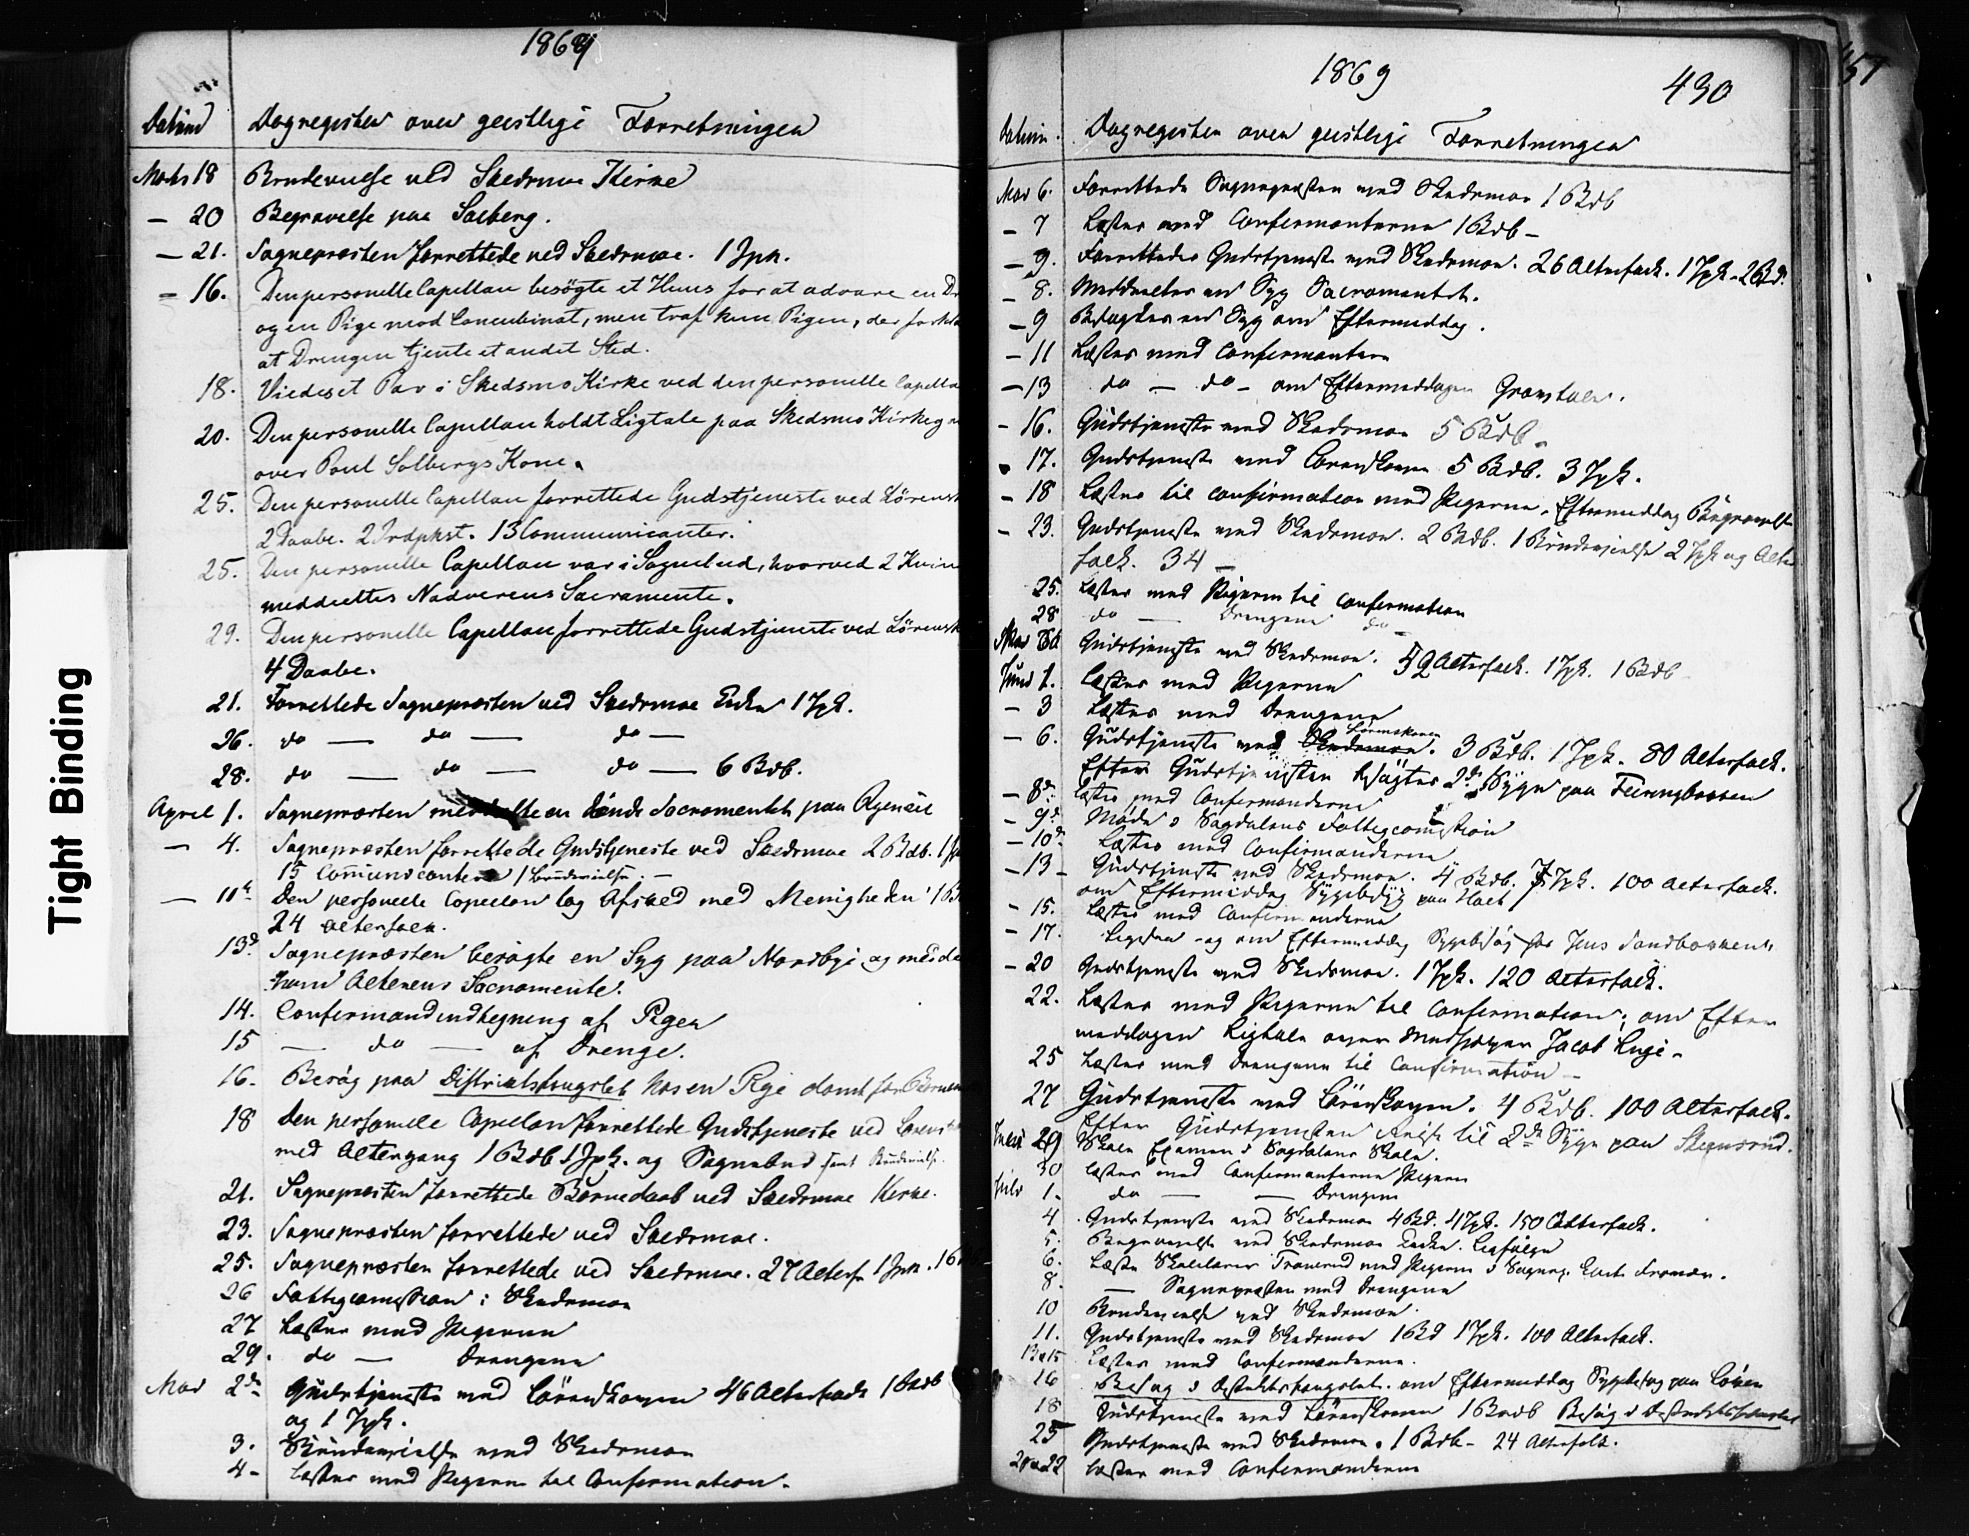 Tight Binding
1869
Datum Dagregister over geistlige Forretninger
Marts 18 Brudevielse ved Skedsmoe Kirke
— 20 Begravelse paa Solberg.
— 21. Sognepræsten forrettede ved Skedsmoe. 1 Jpk.
— 16. Den personelle Capellan besögte et Huus for at advare en
og en Pige mod Concubinat, men traf kun Pigen, der
at Drengen tjente et andet Sted.
18. Viedes et Par i Skedsmo Kirke ved den personelle Capella
20. Den personelle Capellan holdt Ligtale paa Skedsmo Kirkeg
over Poul Solbergs Kone.
25. Den personelle Capellan forrettede Gudstjeneste ved Lörensk
2 Daabe. 2 Irdpkst. 13 Communicanter.
25. Den personelle Capellan var i Sognebud, hvorved 2 Kvin
meddeeltes Nadverens Sacramente.
29. Den personelle Capellan forrettede Gudstjeneste ved Lörensk
4 Daabe.
21. Forrettede Sognepræsten ved Skedsmoe Kirke 1 Jpk.
26. do — do — do —
28. do — do — do — 6 Bdb.
April 1. Sognepræsten meddeelte en döende Sacramentet paa
— 4. Sognepræsten forrettede Gudstjeneste ved Skedsmoe 2 Bdb. 1
15 Comunicantere 1 Brudevielse. —
— 11te Den personelle Capellan tog Afsked med Menigheden 1
24 Altersfolk.
13de Sognepræsten besögte en Syg paa Nordbye og
ham Alterens Sacramente.
14. Confirmandindtegning af Piger
15 — do — af Drenge.
16. Besög paa Districtsfængslet hos en Pige dömt for
18 Den personelle Capellan forrettede Gudstjeneste ved
med Altergang 1 Bdb 1 Jpk. og Sognebud samt Brudevielse.
21. Sognepræsten forrettede Barnedaab ved Skedsmoe Kirke.
23. Sognepræsten forrettede ved Skedsmoe.
25. Sognepræsten forrettede ved Skedsmoe. 27 Altersf. 1 Jpk. 1
26 Fattigcomission i Skedsmoe
27 Læstes med Pigerne
29. do — Drengene
Mai 2de Gudstjeneste ved Lörenskogen 46 Altersfolk 1 Bdb
og 1 Jpk.
3. Brudevielse ved Skedsmoe
4 - Læstes med Pigerne til Confirmation.
1869 430
Datum. Dagregister over geistlige Forretninger
Mai 6. Forrettede Sognepræsten ved Skedsmoe 1 Bdb
— 7 Læstes med Confirmanterne 1 Bdb —
— 9. Forrettedes Gudstjeneste ved Skedsmoe. 26 Altersfolk. 1 Jpk. 2 Bd.
— 8. Meddeeltes en Syg Sacramentet.
— 9 Besögtes en Syg om Eftermiddag.
— 11 Læstes med Confirmanter
— 13 do — do — om Eftermiddagen
— 16. Gudstjeneste ved Skedsmoe 5 Bdb.
17. Gudstjeneste ved Lörenskogen 5 Bdb. 3 Jpk.
— 18 Læstes til Confirmation med Pigerne. Eftermiddag Begravelse
— 23. Gudstjeneste ved Skedsmoe. 2 Bdb. 1 Brudevielse 2 Jpk og Alters
folk. 34 —
25. Læstes med Pigerne til Confirmation
28 do — Drengene do —
Mai 30 Gudstjeneste ved Skedsmoe. 52 Altersfolk. 1 Jpk. 1 Bdb
Juni 1. Læstes med Pigerne
— 3 Læstes med Drengene
— 6. Gudstjeneste ved Skedsmoe Lörenskoven. 3 Bdb. 1 Jpk. 80 Altersfolk.
Efter Gudstjenesten besögtes 2de Syge paa
— 8de Læstes med Confirmanderne
— 9de Möde i Sagdalens Fattigcomistion
— 10de Læstes med Confirmanderne
— 13 — Gudstjeneste ved Skedsmoe. 4 Bdb. 7 Jpk. 100 Altersfolk.
om Eftermiddag Sygebesög paa
— 15. Læstes med Confirmanderne
— 17. Ligesaa - og om Eftermiddag Sygebesög hos Jens
— 20 Gudstjeneste ved Skedsmoe. 1 Jpk. 120 Altersfolk.
22. Læstes med Pigerne til Confirmation; om Efter
meddagen Ligtale over Medhjælper Jacob
25 Læstes med Drengene til Confirmation —
27 Gudstjeneste ved Lörenskogen. 4 Bdb. 100 Altersfolk.
Efter Gudstjenesten Reise til 2de Syge paa
Juni 29 Skole Examen i Sagdalens Skole.
30 Læstes med Confirmanterne Pigerne
Juli 1. do — — Drengene
4 Gudstjeneste ved Skedsmoe 4 Bd. 4 Jpk. 150 Altersfolk.
5. Begravelse ved Skedsmoe Kirke.
6. Læste Skolelærer med Pigerne i Sognep.
8. — Sognepræsten med Drengene
10 Brudevielse ved Skedsmoe.
11. Gudstjeneste ved Skedsmoe 1 Bd 1 Jpk. 100 Altersfolk.
13 & 15 Læstes med Confirmanderne.
16 Besög i Distriktsfængslet. om Eftermiddag Sygebesög paa
18 Gudstjeneste ved Lörenskoven 1 Bdb Besög i Distriktsfængslet
25 Gudstjeneste ved Skedsmoe. 1 Bdb — 24 Altersfolk.
20 & 22 Læstes med Confirmanderne